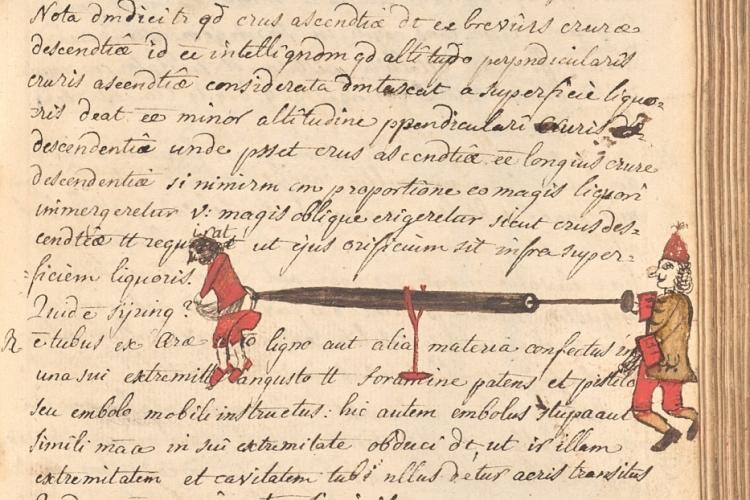 Nota dmdicitr qd crus ascendtiæ dt eẽ brevius crure
descendtiæ id eẽ intelligndm qd altitudo perpndicularis
cruris ascendtiæ considerata dm a superficie liquo=
ris deat eẽ minor altitudine ppendiculari cruris de=
descendentiæ unde psset crus ascendtiæ eẽ longius crure
descendentiæ si nimirm cm proportione eo magis liquori
immergeretur v: magis oblique erigeretur sicut crus des=
cendtiæ tt ut ejus orificium sit infra super=
ficiem liquoris.
Quid ẽ syring?
R ẽ tubus ex ligno aut alia materia confectus in
una sui angusto tt foramine patens et pistilo
seu embolo mobili instructus: hic autem embolus stupa aut
simili maa in sui extremitate obduci dt, ut ir illam
extremitatem et cavitatem tubi nllus detur aeris transitus